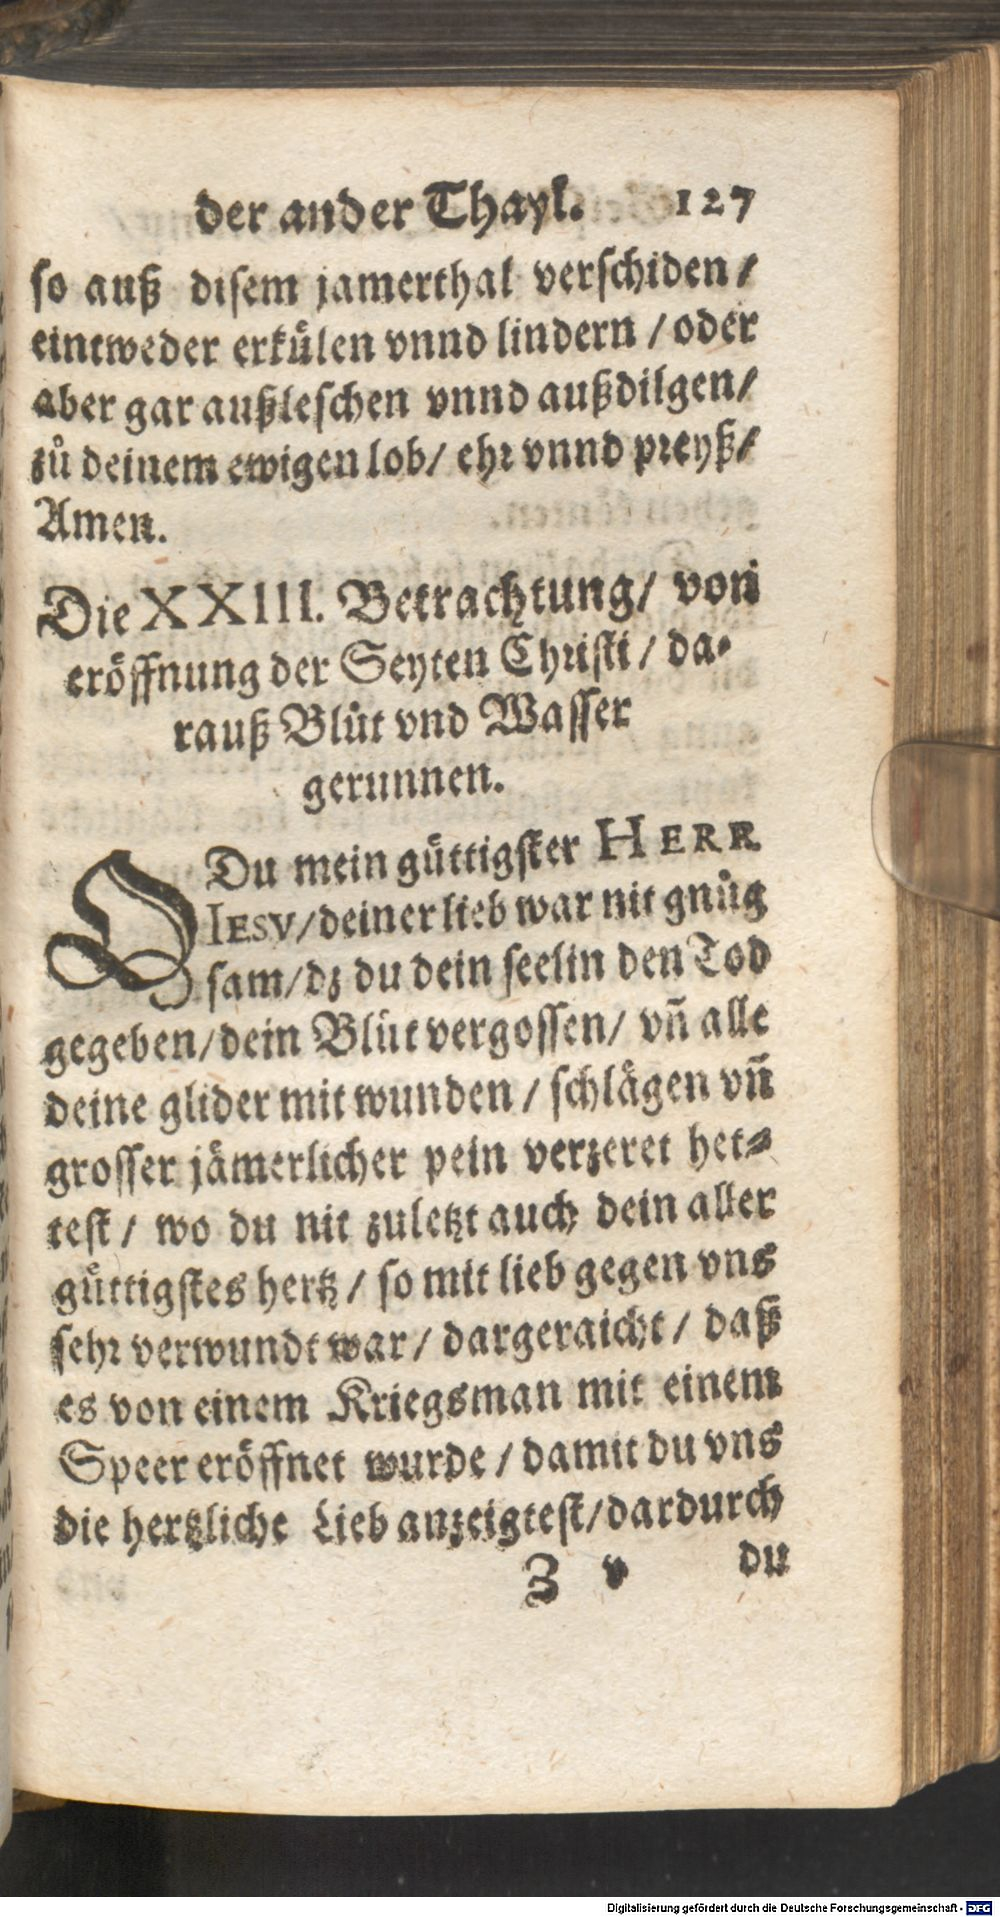 der ander Thayl. 127
so auß disem jamerthal verschiden /
eintweder erkuͤlen vnnd lindern / oder
aber gar außleschen vnnd außdilgen /
zuͦ deinem ewigen lob / ehr vnnd preyß /
Amen.
Die XXIII. Betrachtung / von
eroͤffnung der Seyten Christi / da-
rauß Bluͦt vnd Wasser
gerunnen.
O Du mein guͤttigster HERR
IESV / deiner lieb war nit gnuͦg
sam / dz du dein seel in den Tod
gegeben / dein Bluͦt vergossen / vñ alle
deine glider mit wunden / schlaͤgen vñ
grosser jaͤmerlicher pein verzeret het-
test / wo du nit zuletzt auch dein aller
guͤttigstes hertz / so mit lieb gegen vns
sehr verwundt war / dargeraicht / daß
es von einem Kriegsman mit einem
Speer eroͤffnet wurde / damit du vns
die hertzliche Lieb anzeigtest / dardurch
Z v du
Digitalisierung gefördert durch die Deutsche Forschungsgemeinschaft - DFG